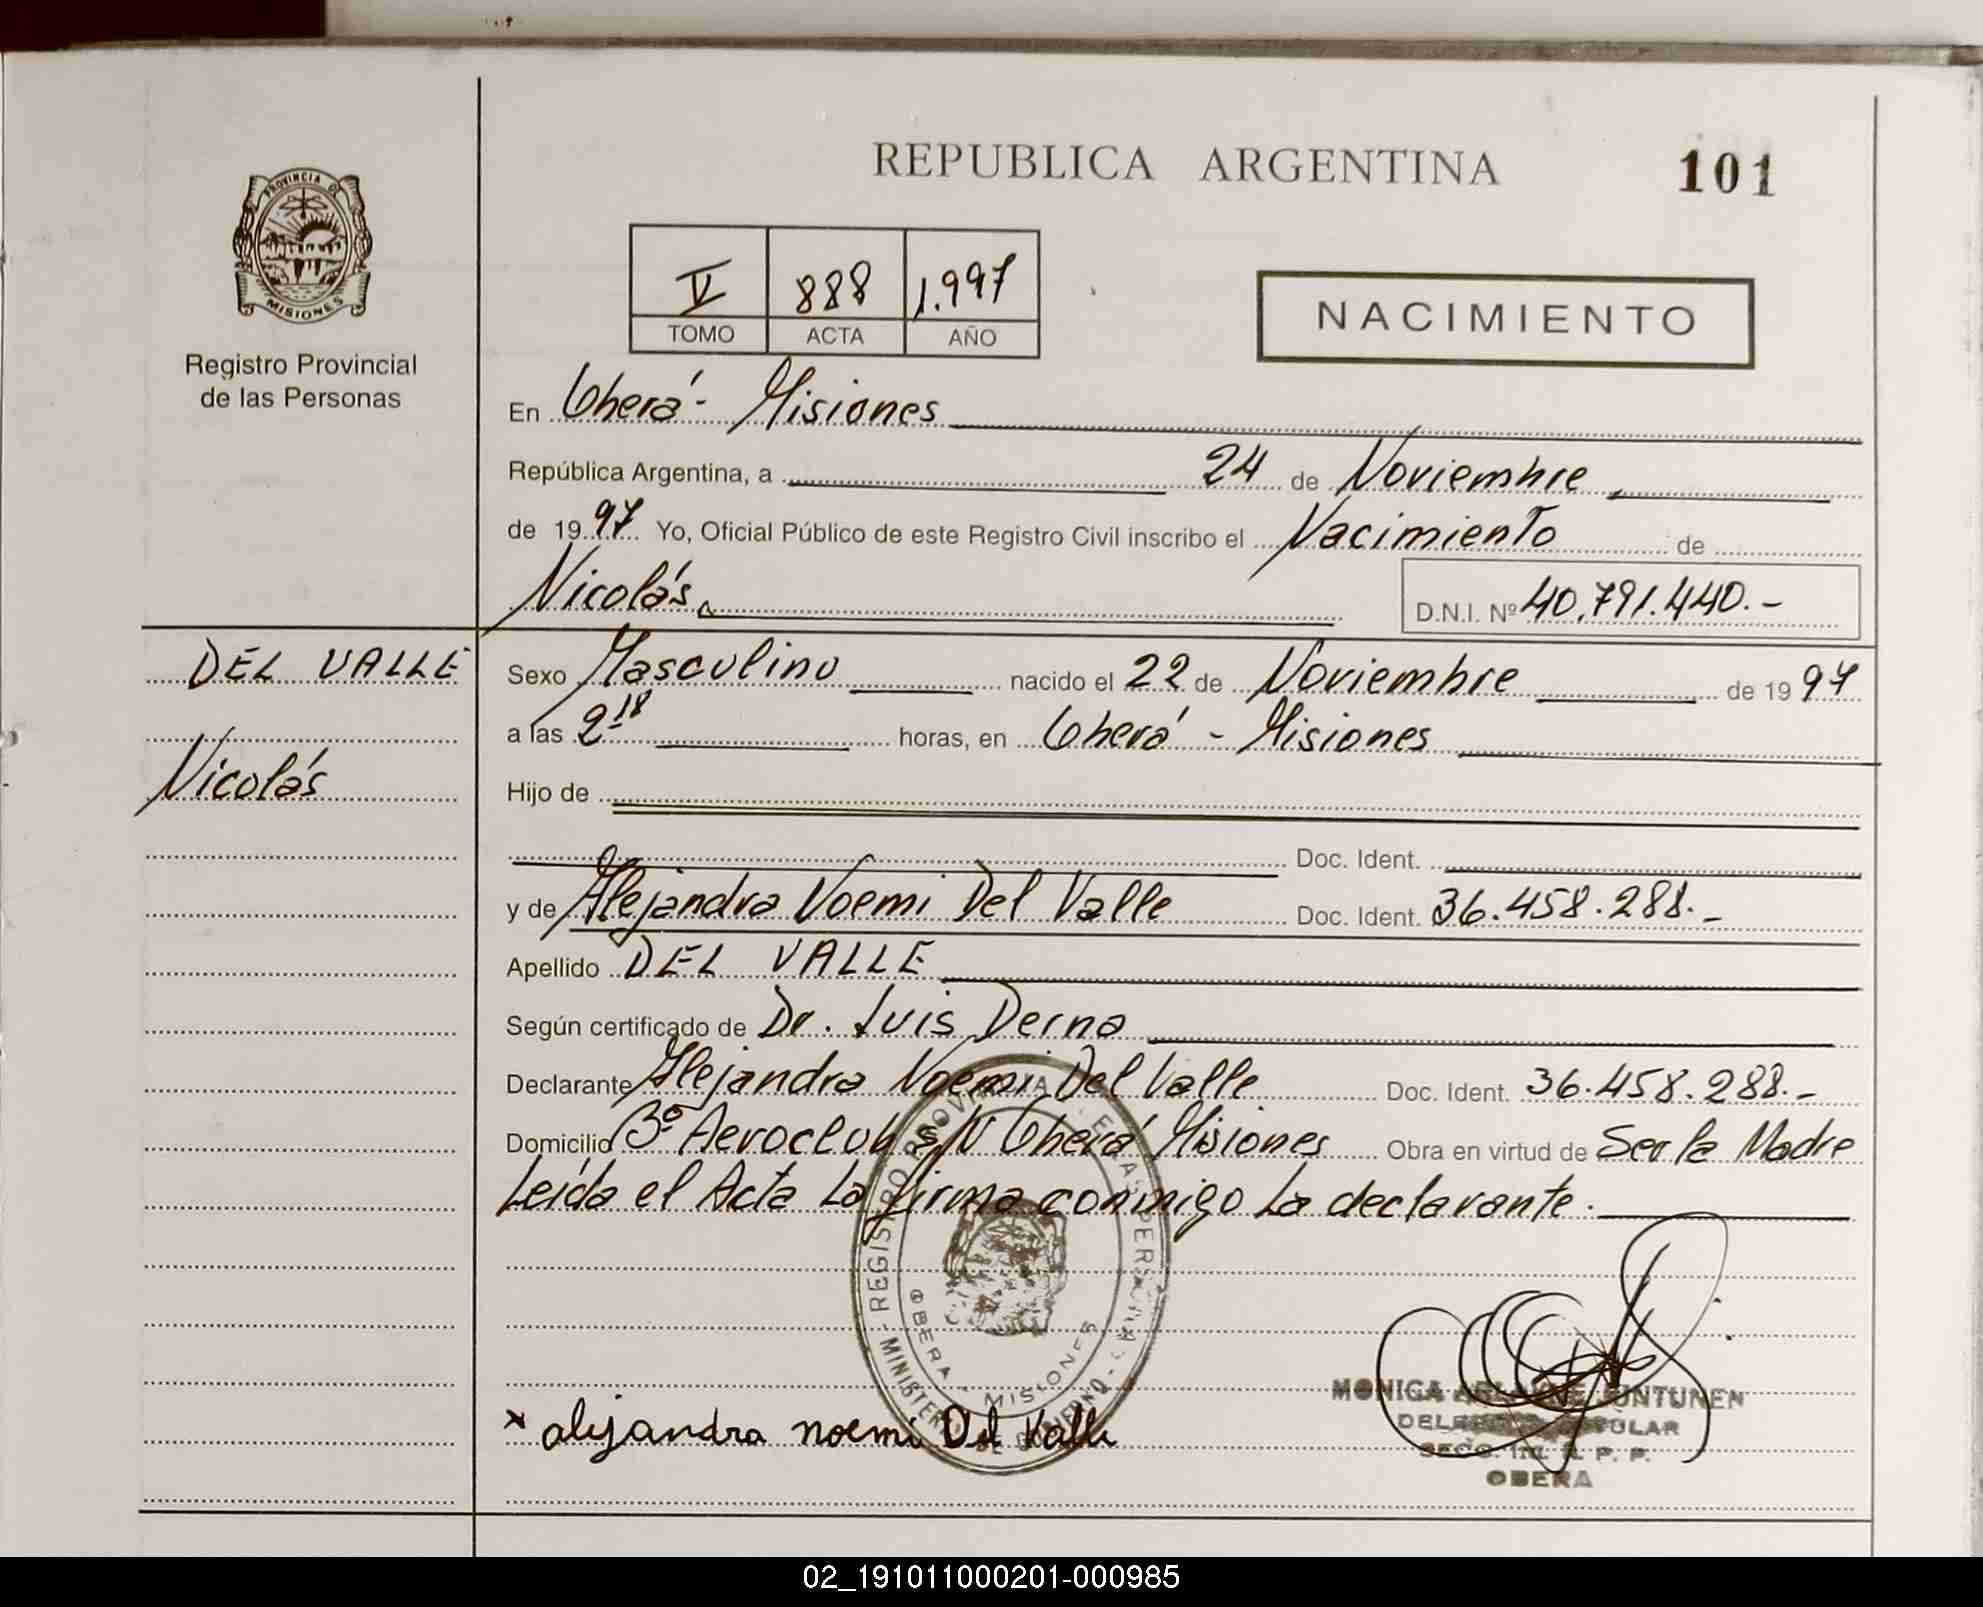 REPUBLICA ARGENTINA
101
PROVINCIA DE MISIONES
Registro Provincial
de las Personas
V 888 1.997
TOMO ACTA AÑO
NACIMIENTO
En Oberá - Misiones
República Argentina, a 24 de Noviembre
de 1997 Yo, Oficial Público de este Registro Civil inscribo el Nacimiento de
Nicolás D.N.I. Nº 40.791.440.-
DEL VALLE
Nicolás
Sexo Masculino nacido el 22 de Noviembre de 1997
a las 2 18 horas, en Oberá - Misiones
Hijo de
Doc. Ident.
y de Alejandra Noemi Del Valle Doc. Ident. 36.458.288.-
Apellido DEL VALLE
Según certificado de Dr. Luis Derna
Declarante Alejandra Noemi Del Valle Doc. Ident. 36.458.288.-
Domicilio Bº Aeroclub S/N Oberá Misiones Obra en virtud de Ser la Madre
Leída el Acta La firma conmigo La declarante.
REGISTRO PROVINCIAL DE LAS PERSONAS
OBERA - MISIONES
MINISTERIO DE GOBIERNO
x alejandra noemi Del Valle
MONICA
SECC. R. P. P.
OBERA
02_191011000201-000985